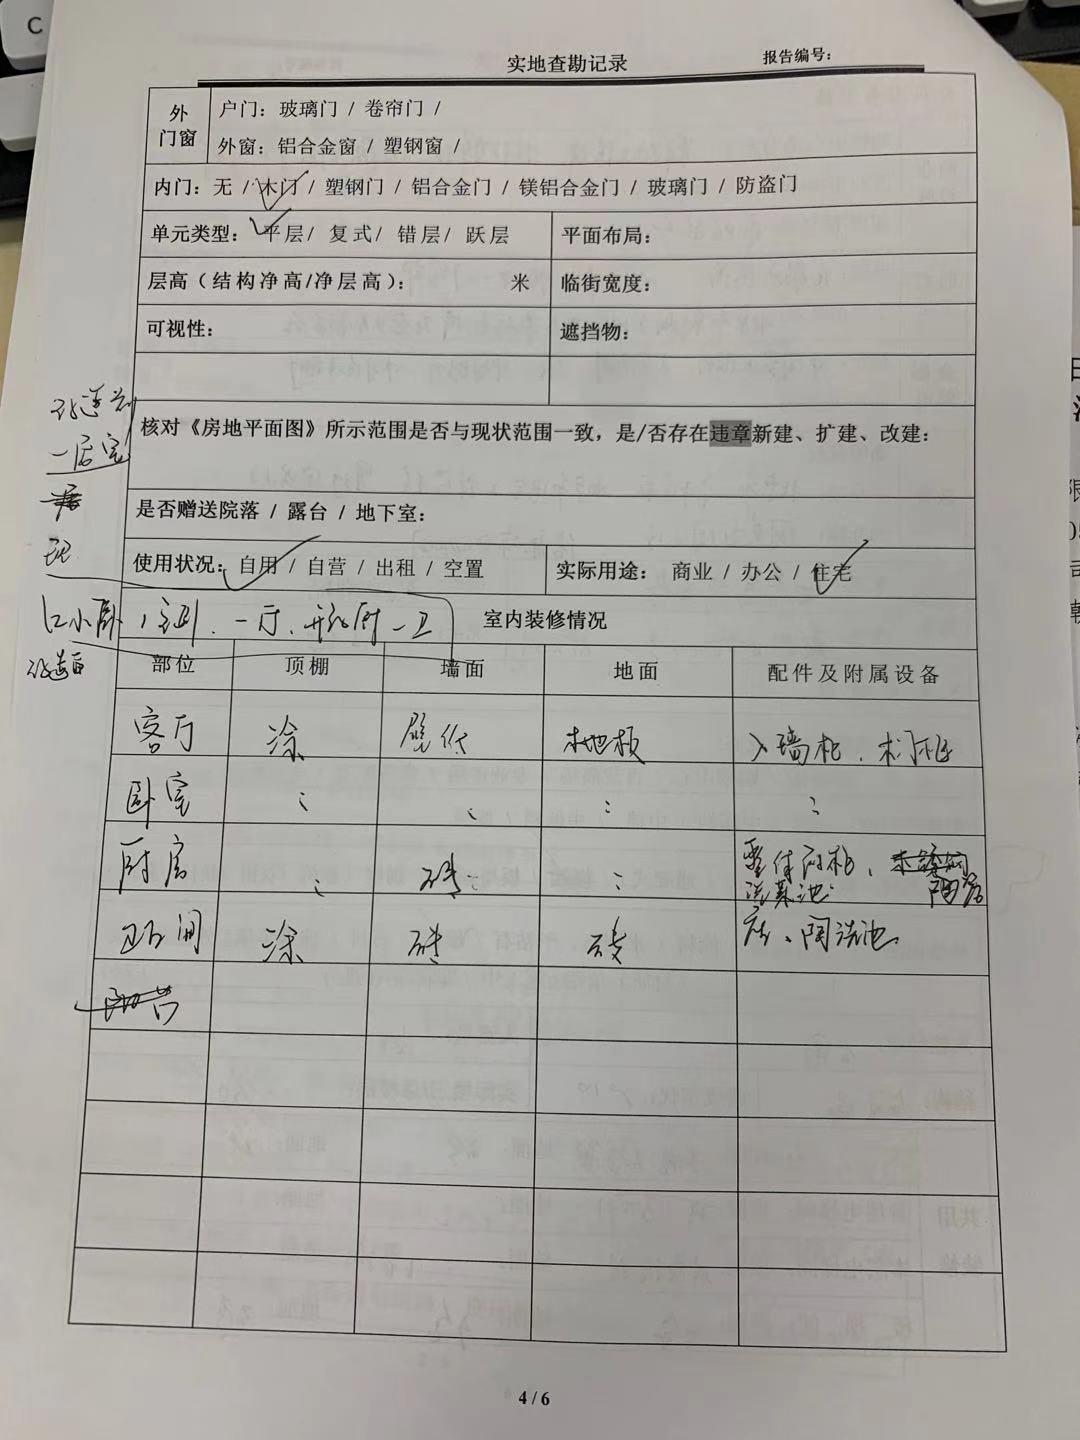 C
实地查勘记录
报告编号：
外门窗
户门：玻璃门 / 卷帘门 /
外窗：铝合金窗 / 塑钢窗 /
内门：无 / 木门 / 塑钢门 / 铝合金门 / 镁铝合金门 / 玻璃门 / 防盗门
单元类型： 平层/ 复式/ 错层/ 跃层
平面布局：
层高（结构净高/净层高）： 米
临街宽度：
可视性：
遮挡物：
核对《房地平面图》所示范围是否与现状范围一致，是/否存在违章新建、扩建、改建：
一居室
是否赠送院落 / 露台 / 地下室：
使用状况： 自用 / 自营 / 出租 / 空置
实际用途： 商业 / 办公 / 住宅
一厅、 一卫
室内装修情况
部位 顶棚 墙面 地面 配件及附属设备
客厅 涂 壁纸 木地板 入墙柜、木门柜
卧室 : : : :
厨房 : 砖 :
洗菜池
卫生间 涂 砖 砖
4 / 6